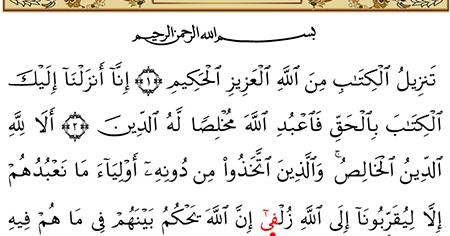 بسم الله الرحمن الرحيم
تَنزِيلُ ٱلْكِتَٰبِ مِنَ ٱللَّهِ ٱلْعَزِيزِ ٱلْحَكِيمِ ﴿١﴾ إِنَّآ أَنزَلْنَآ إِلَيْكَ
ٱلْكِتَٰبَ بِٱلْحَقِّ فَٱعْبُدِ ٱللَّهَ مُخْلِصًا لَّهُ ٱلدِّينَ ﴿٢﴾ أَلَا لِلَّهِ
ٱلدِّينُ ٱلْخَالِصُ ۚ وَٱلَّذِينَ ٱتَّخَذُوا۟ مِن دُونِهِۦٓ أَوْلِيَآءَ مَا نَعْبُدُهُمْ
إِلَّا لِيُقَرِّبُونَآ إِلَى ٱللَّهِ زُلْفَىٰٓ إِنَّ ٱللَّهَ يَحْكُمُ بَيْنَهُمْ فِى مَا هُمْ فِيهِ